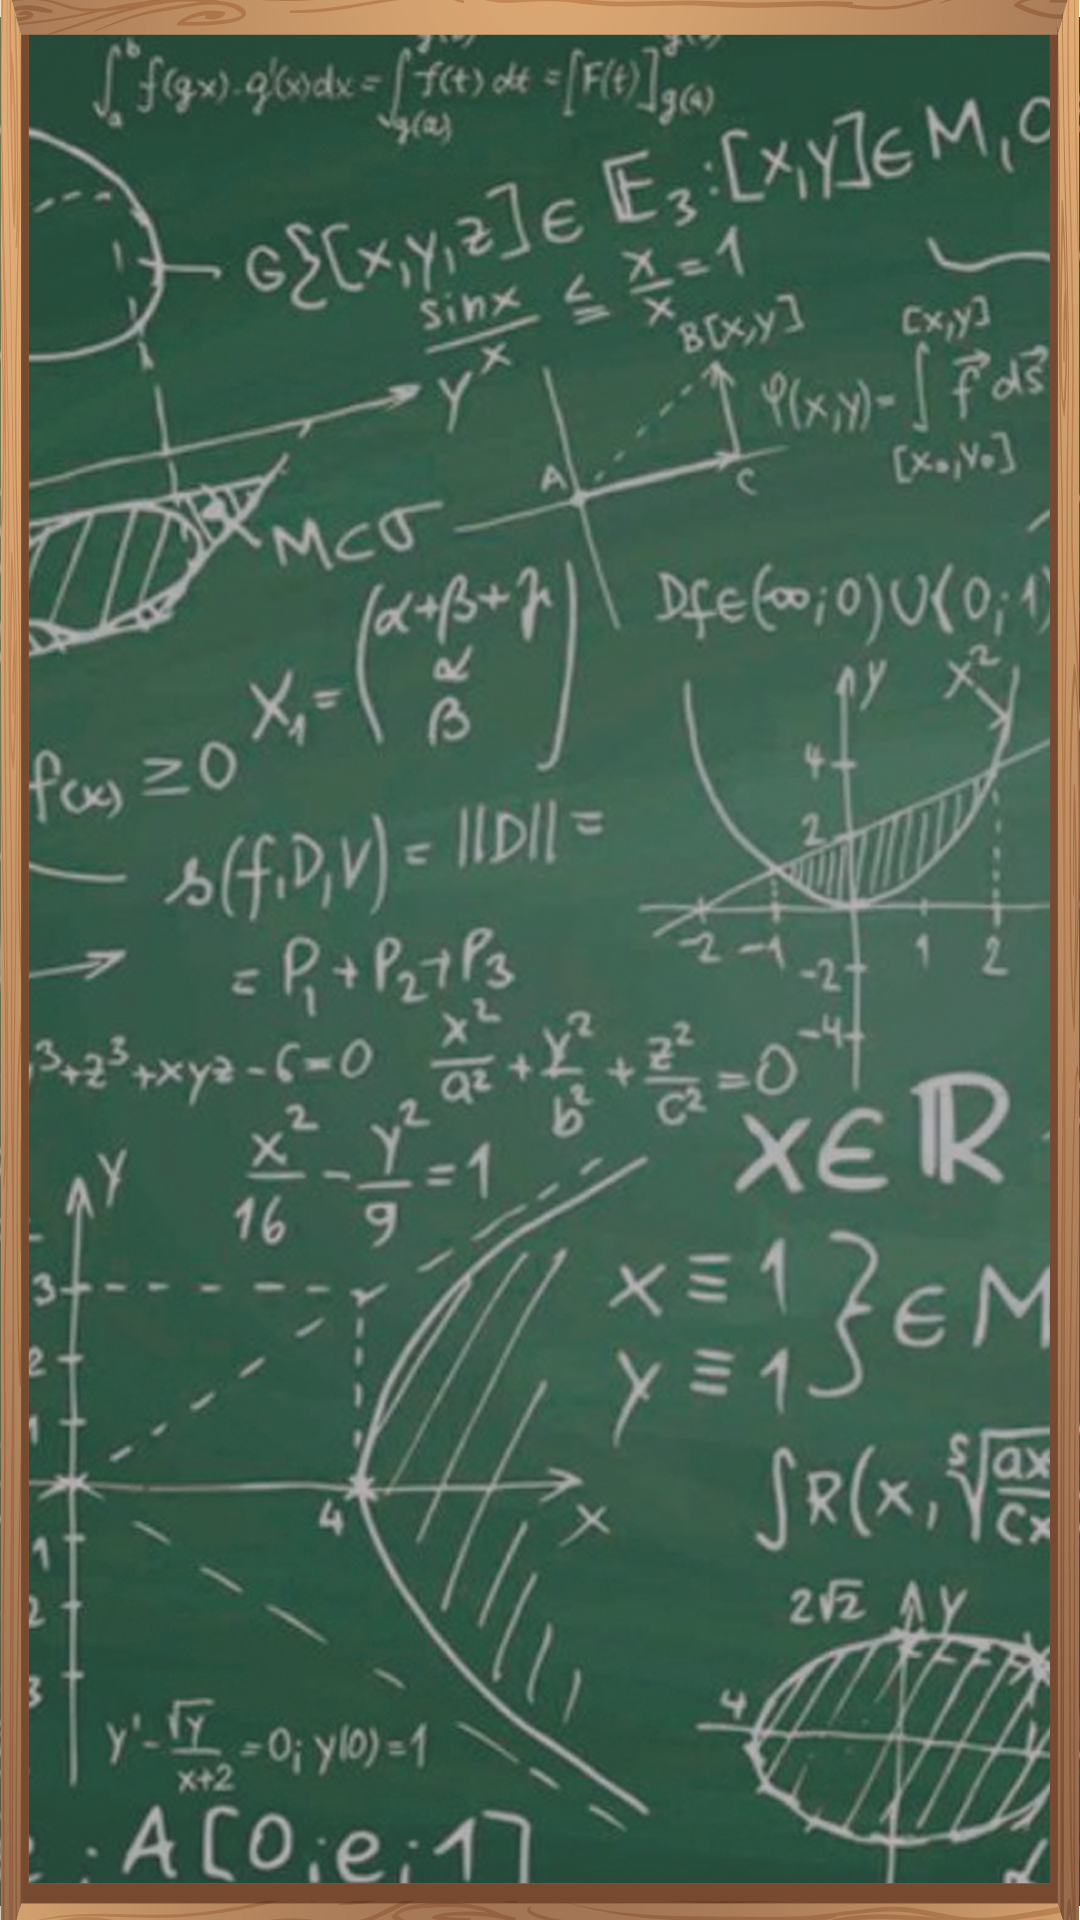 ∫ₐᵇ f(gx).g'(x)dx = ∫ f(t) dt = [F(t)]
g(a) g(a)
G{[x,y,z] ∈ E₃:[x,y] ∈ M,0
sinx/x ≤ x/x = 1
B[x,y]
[x,y]
φ(x,y)= ∫ f⃗ ds⃗
[x₀,y₀]
Y
A C
M⊂σ
Df∈(∞;0)∪(0;1)
X₁ = (α+β+γ
α
β)
y x²
4
2
-2 -1 1 2
-2
-4
f(x) ≥0
s(f,D,V) = ||D|| =
= P₁+P₂+P₃
³+z³+xyz-6=0
x²/a² + y²/b² + z²/c² =0
x²/16 - y²/9 =1
x∈ℝ
Y
3
2
1
4 X
1
2
3
x ≡ 1
y ≡ 1 } ∈ M
∫R(x, ˢ√ax/cx
2√2 y
4
y'-√y/x+2 =0; y(0)=1
: A[0;e;1]